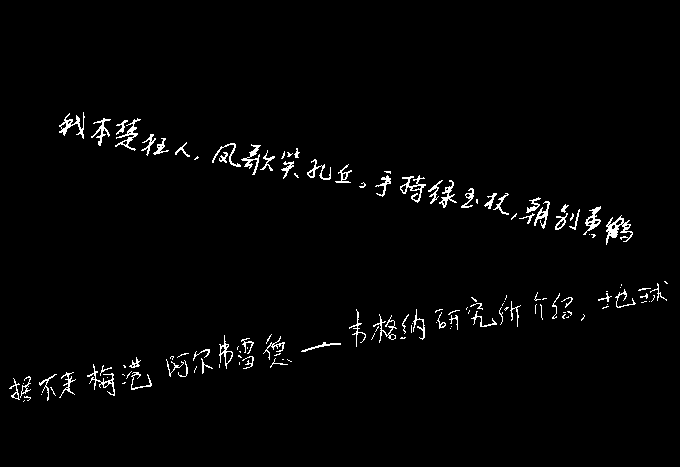 我本楚狂人,凤歌笑孔丘。手持绿玉杖,朝别黄鹤
据不来梅港阿尔弗雷德—韦格纳研究所介绍,地球